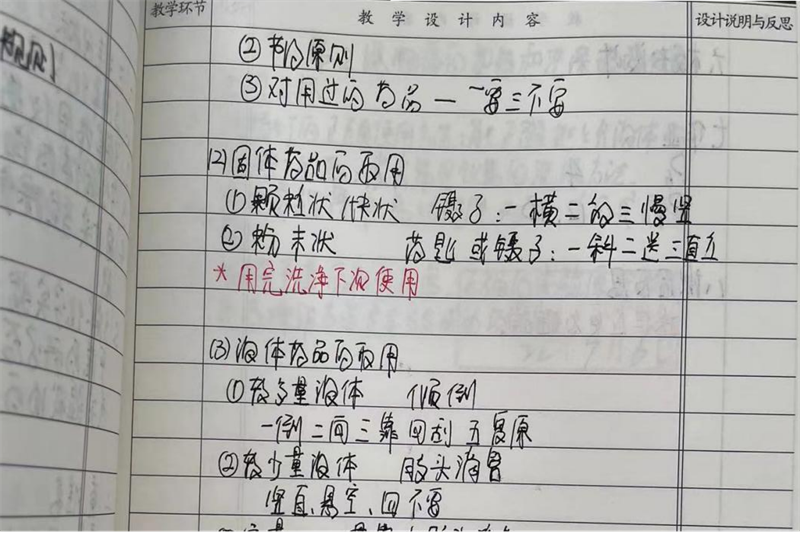 教学环节 教学设计内容 设计说明与反思
②节约原则
③对用过的药品——一要三不要
(2)固体药品的取用
①颗粒状/块状 镊子:一横二的三慢竖
②粉末状 药匙或镊子:一斜二送三直立
*用完洗净下次使用
(3)液体药品的取用
①较多量液体 倾倒
一倒二向三靠四刮五复原
②较少量液体 胶头滴管
竖直、悬空、回不要